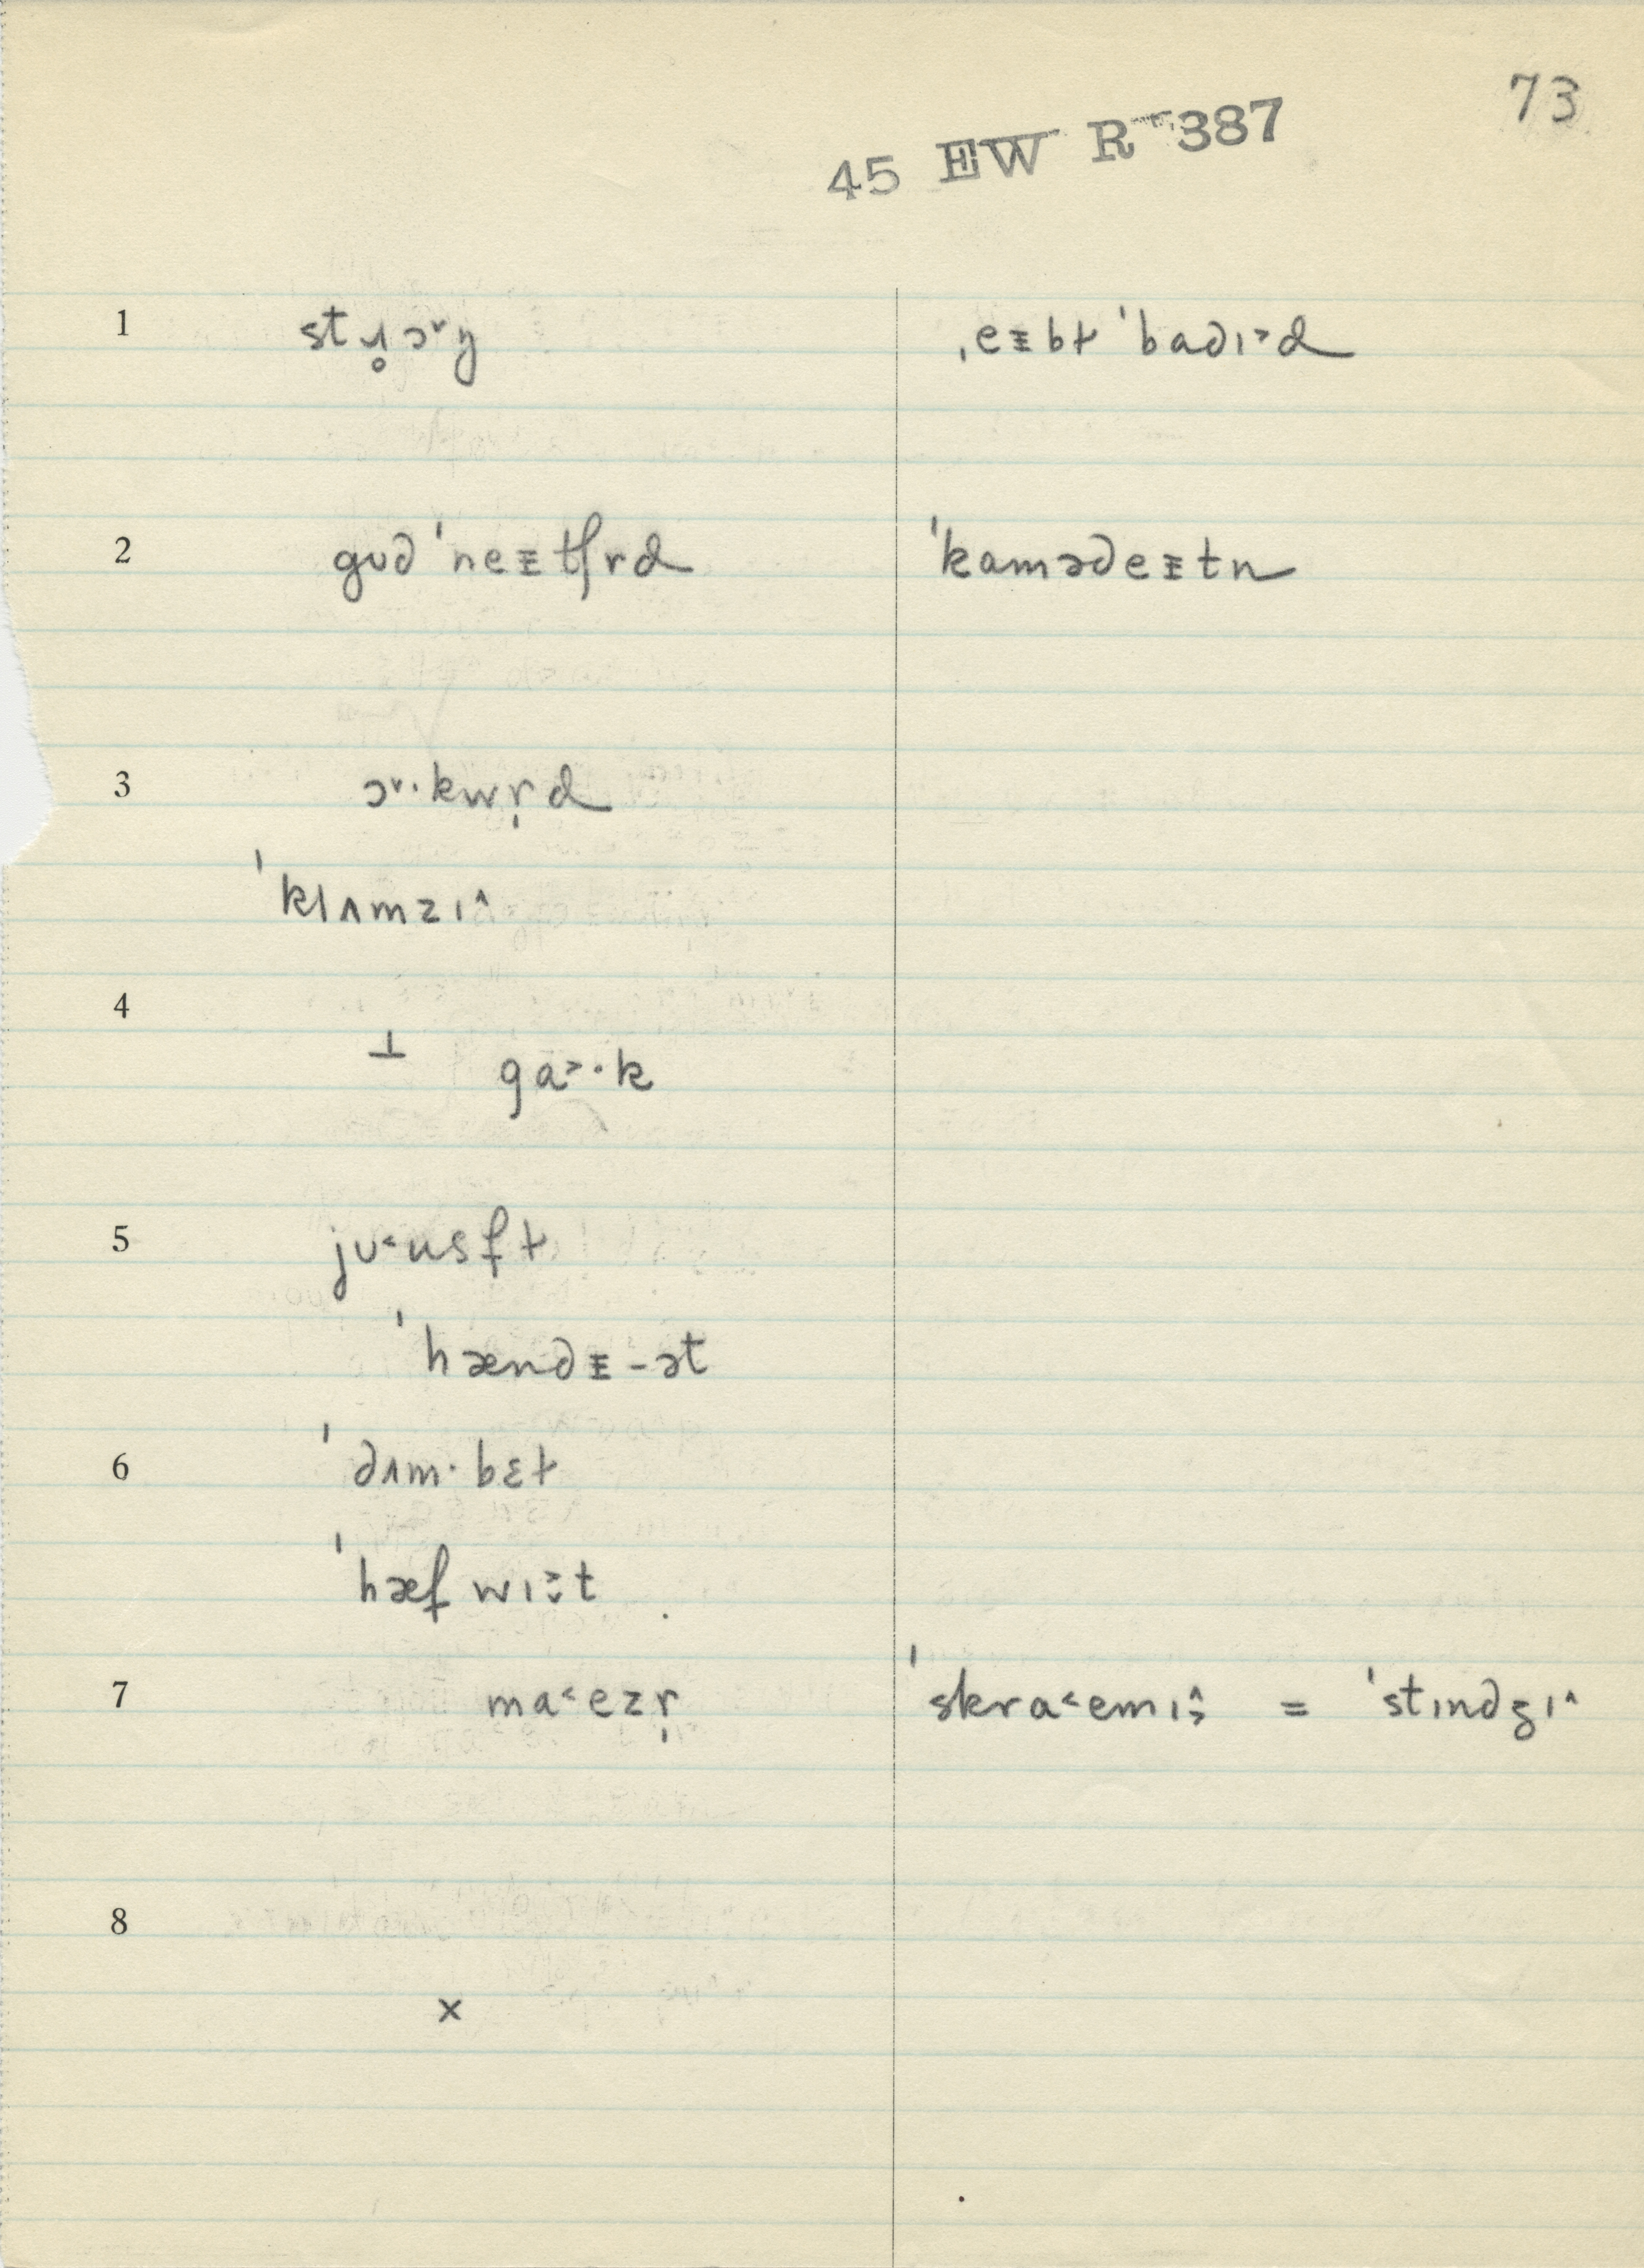 73
45 EW R 387
1 stɹ̥ɔ˅ŋ ˌeɪbɫ ˈbadɪ˃d
2 gʊd ˈneɪtʃrd ˈkamədeɪtn
3 ɔ˅·kwr̩d
ˈklʌmzɪ˄
4 ⊥ ga˃·k
5 jʊ˂usfɫ
ˈhændɪ-ət
6 ˈdʌm·bɛɫ
ˈhæf wɪ˃˅t
7 ma˂ezr̩ ˈskra˂emɪ˄˒ = ˈstɪndʒɪ˄
8
x